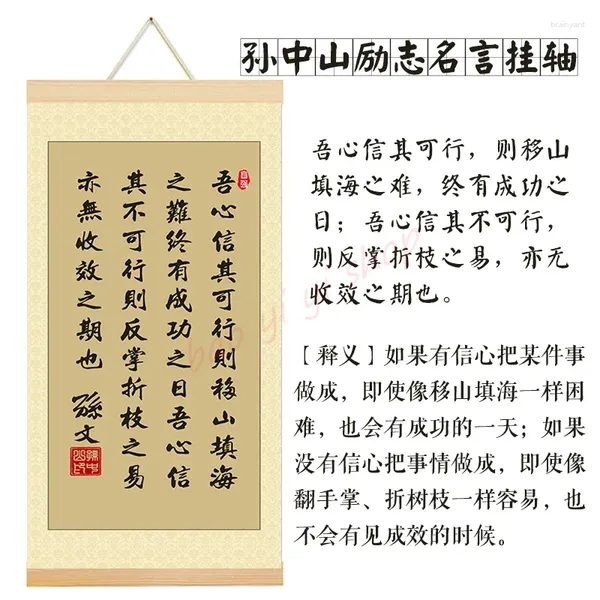 brainyant
孙中山励志名言挂轴
吾心信其可行則移山填海
之難終有成功之日吾心信
其不可行則反掌折枝之易
亦無收效之期也
孫文
吾心信其可行，则移山
填海之难，终有成功之
日；吾心信其不可行，
则反掌折枝之易，亦无
收效之期也。
【释义】如果有信心把某件事
做成，即使像移山填海一样困
难，也会有成功的一天；如果
没有信心把事情做成，即使像
翻手掌、折树枝一样容易，也
不会有见成效的时候。
bao yi shop